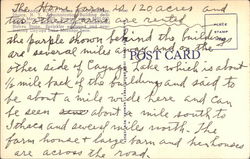 The Home farm is 120 acres and
two other farms are rented
the purple shown behind the buildings
are several miles away and on the
other side of Cayuga Lake which is about
POST CARD
½ mile back of the buildings and said to
be about a mile wide here and can
be seen about a mile south to
Ithaca and several miles north. The
farm house & large barn and henhouses
are across the road.